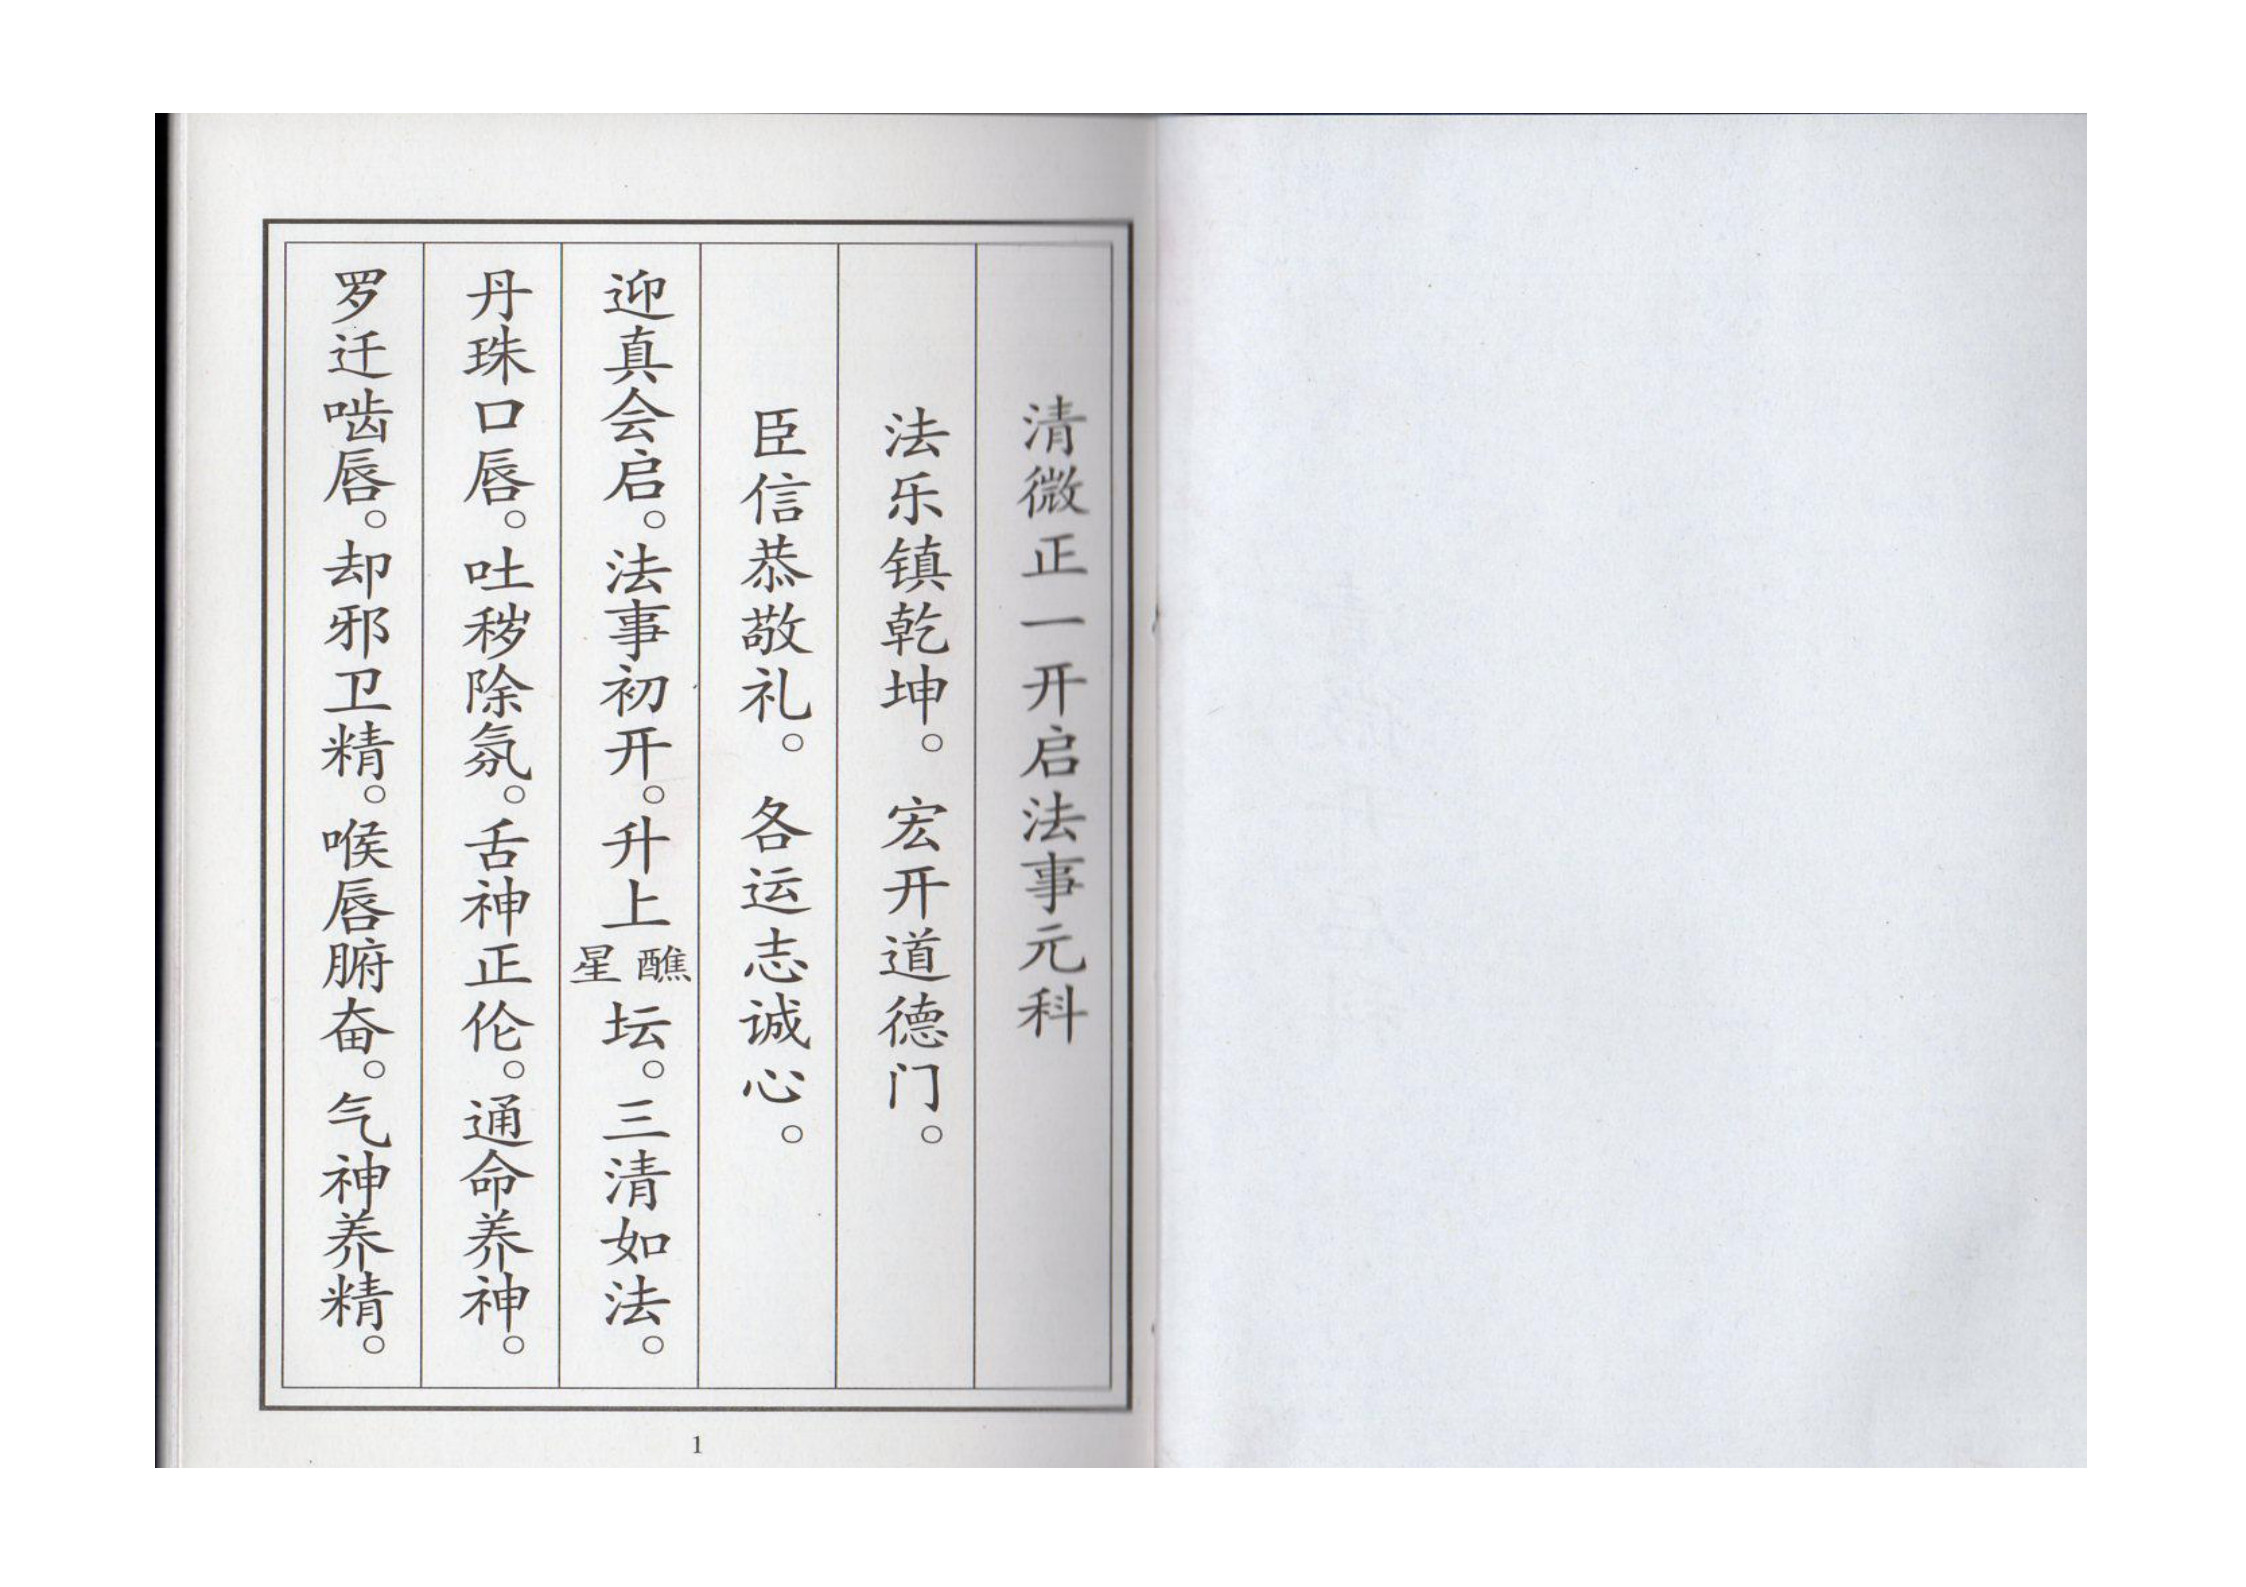 清微正一开启法事元科
法乐镇乾坤。宏开道德门。
臣信恭敬礼。各运志诚心。
迎真会启。法事初开。升上醮星坛。三清如法。
丹珠口唇。吐秽除氛。舌神正伦。通命养神。
罗迁啮唇。却邪卫精。喉唇腑奋。气神养精。
1